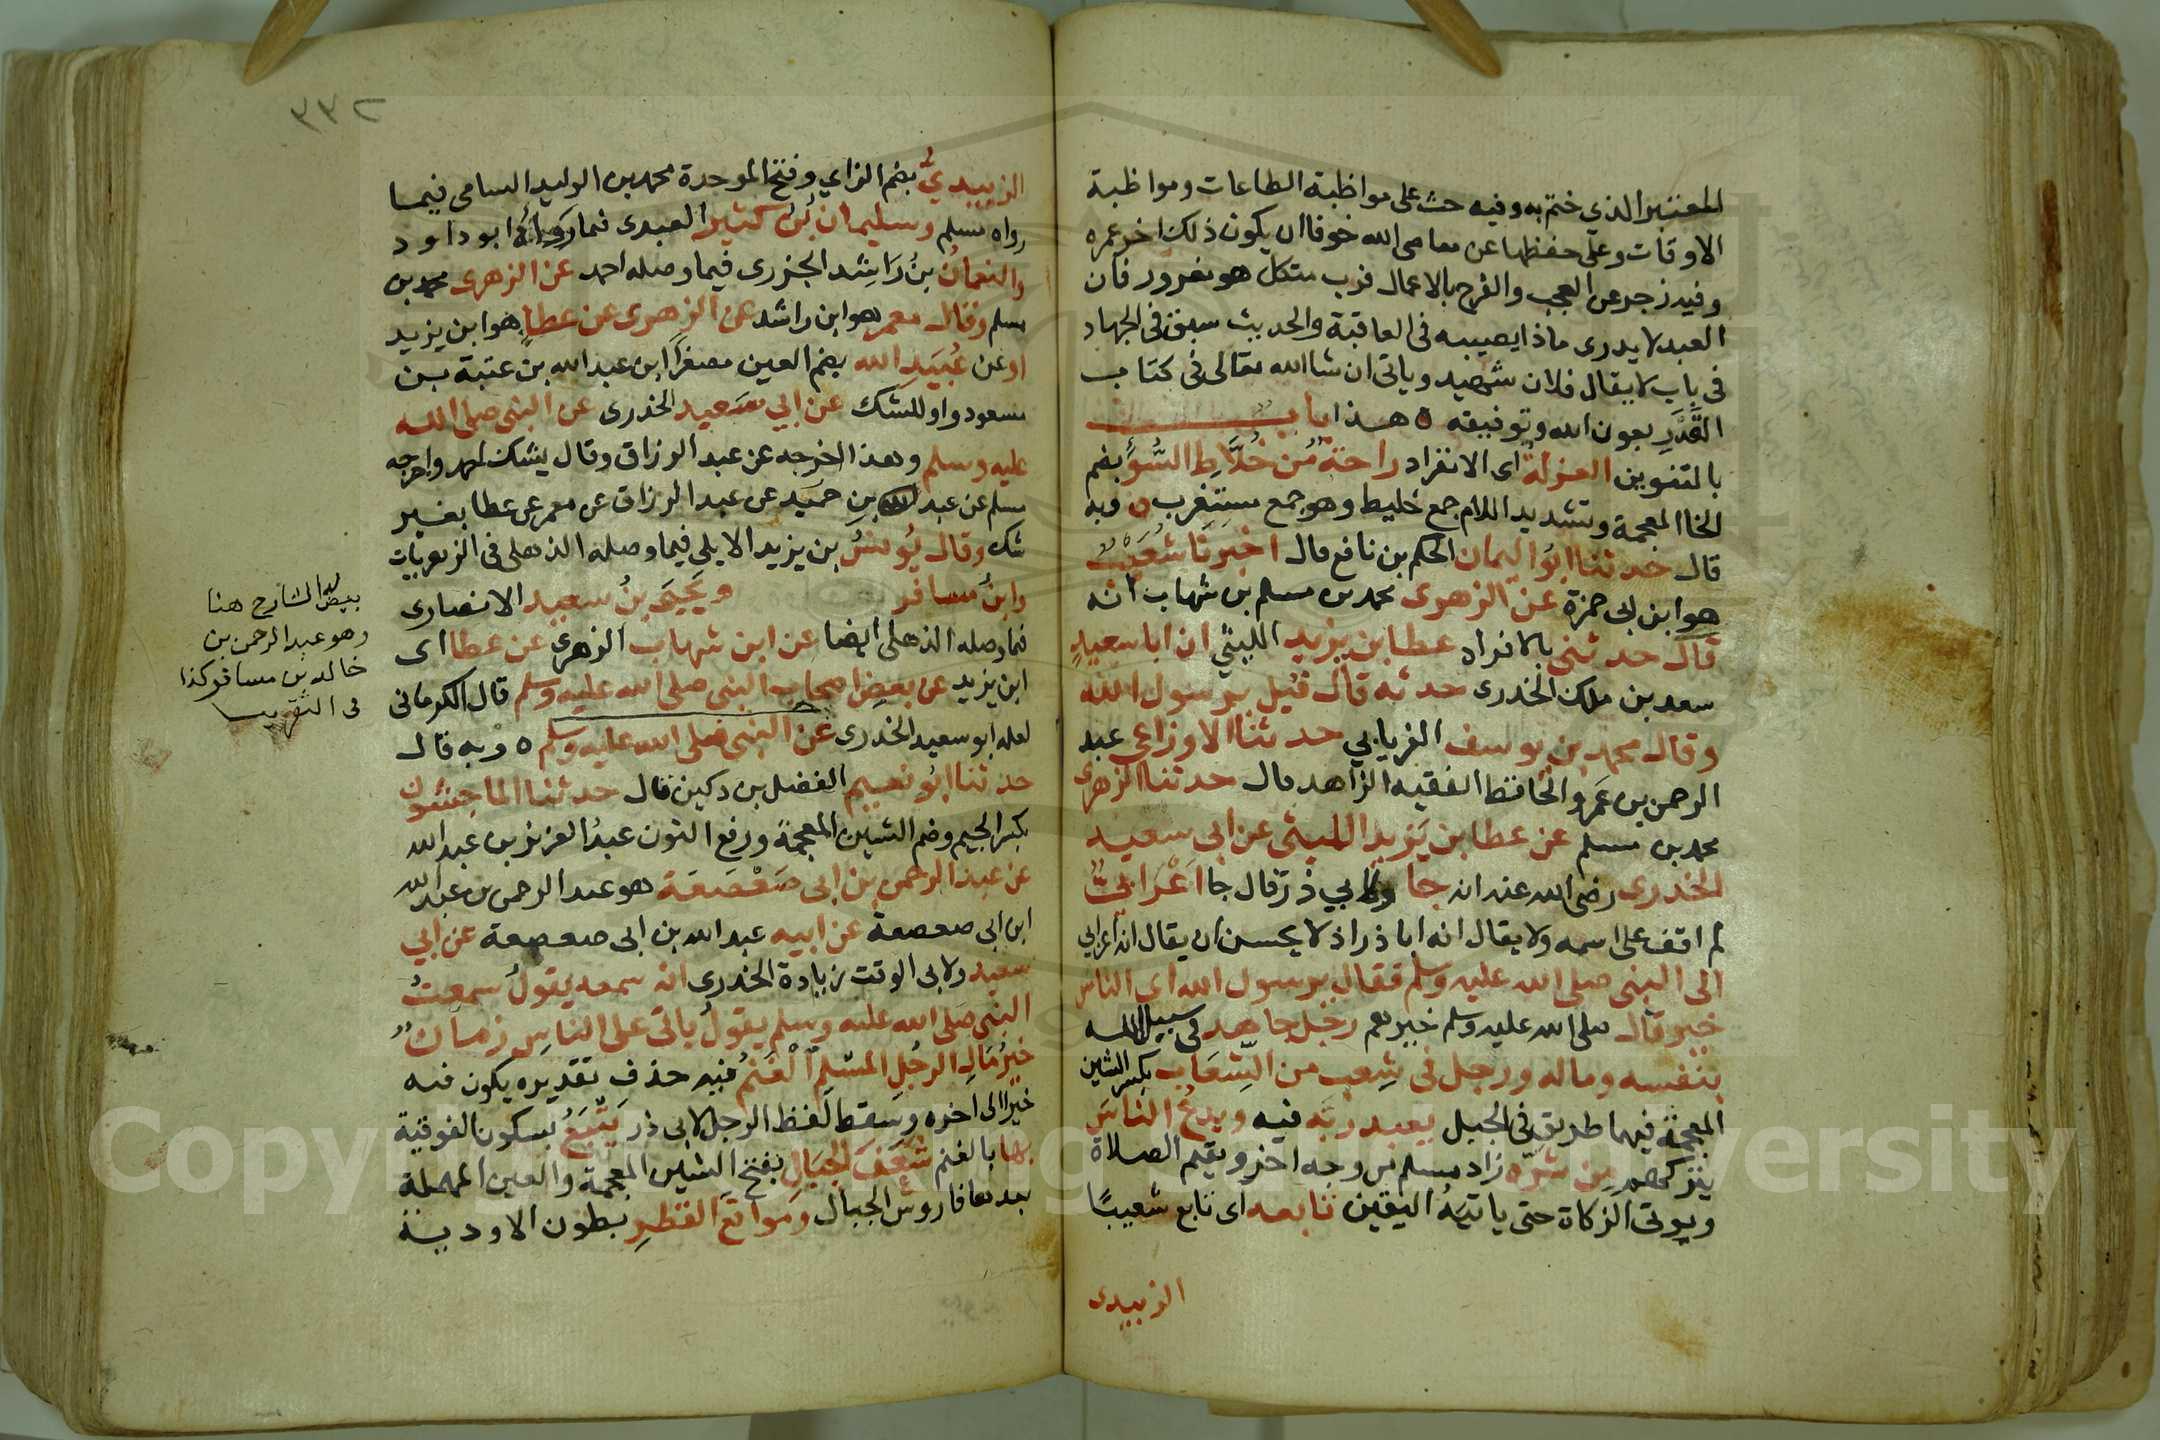 المعتبر الذي ختم به وفيه حث على مواظبة الطاعات ومواظبة
الاوقات وعلى حفظها عن معاصي الله خوفا ان يكون ذلك اخر عمره
وفيه زجر عن العجب والفرح بالاعمال فرب متكل هو مغرور فان
العبد لا يدرى ماذا يصيبه فى العاقبة والحديث سبق فى الجهاد
فى باب لا يقال فلان شهيد وياتى ان شا الله تعالى فى كتاب
القَدَرِ بعون الله وتوفيقه ٥ هذا باب
بالتنوين العزلة اى الانفراد راحة مِن خُلَّاطِ السُّوءِ بضم
الخا المعجمة وتشديد اللام جمع خليط وهو جمع مستغرب ٥ وبه
قال حدثنا ابو اليمان الحكم بن نافع قال اخبرنا شُعَيْبٌ
هو ابن ابى حمزة عن الزهرى محمد بن مسلم بن شهاب انه
قال حدثنى بالافراد عطا بن يزيد الليثي ان ابا سعيدٍ
سعد بن ملك الخدرى حدثه قال قيل يرسول الله
وقال محمد بن يوسف الفريابي حدثنا الاوزاعي عبد
الرحمن بن عمرو الحافظ الفقيه الزاهد قال حدثنا الزهرى
محمد بن مسلم عن عطا بن يَزيد الليثى عن ابى سعيد
الخدرى رضى الله عنه انه جا ولابي ذر قال جا اعْرَابيٌّ
لم اقف على اسمه ولا يقال انه ابا ذر اذ لا يحسن ان يقال انه اعرابي
الى النبى صلى الله عليه وسلم فقال يرسول الله اى الناس
خير قال صلى الله عليه وسلم خيرهم رجل جاهد فى سبيل الله
بنفسه وماله ورجل فى شِعب من الشِّعَاب بكسر الشين
المعجمة فيهما طريق فى الجبل يعبد ربَه فيه ويدعُ الناسَ
يتركهم مِن شرّه زاد مسلم من وجه اخر ويقيم الصلاة
ويوتى الزكاة حتى ياتيهُ اليقين تابعه اى تابع شعيبًا
الزبيدى
٣٣٢
الزبيديُّ بضم الزاي وفتح الموحدة محمد بن الوليد السامى فيما
رواه مسلم وسليمان بْنُ كثير العبدى فما رواه ابو داود
والنعمانُ بنُ رَاشِد الجزرى فيما وصله احمد عن الزهرى محمد بن
مسلم وقال معمر هو ابن راشد عن الزهرى عن عطا هو ابن يزيد
او عن عُبَيَدِ الله بضم العين مصغرًا ابن عبد الله بن عتبة بن
مسعود واو للشك عن ابي سَعيد الخدرى عن النبى صلى الله
عليه وسلم وهذا اخرجه عن عبد الرزاق وقال يشك احمد واخرجه
مسلم عن عبد بن حميَد عن عبد الرزاق عن معمر عن عطا بغير
شك وقال يُونسُ بن يزيد الايلي فيما وصله الذهلى فى الزهريات
وابنُ مسافر ويَحيَى بنُ سعيد الانصارى
فما وصله الذهلى ايضا عن ابن شهاب الزهرى عن عطا اى
ابن يزيد عن بعضِ اصحاب النبى صلى الله عليه وسلم قال الكرمانى
لعله ابو سعيد الخدرى عن النبى صلى الله عليه وسلم ٥ وبه قال
حدثنا ابُو نعيم الفضل بن دكين قال حدثنا الماجِشُون
بكسر الجيم وضم الشين المعجمة ورفع النون عبدُ العزيز بن عبد الله
عن عبد الرحمن بن ابى صَعْصَعَة هو عبد الرحمن بن عبد الله
ابن ابى صعصعة عن ابيه عبد الله بن ابى صعصعة عن ابي
سعيد ولابى الوقت زيادة الخدرى انه سمعه يقولُ سمعتُ
النبى صَلى الله عليه وسلم يقولُ ياتى على الناسِ زمانٌ
خيرُ مَالِ الرجُلِ المسْلِمِ الْغَنَمُ فيه حذف تقديره يكون فيه
خيرا الى اخره وسقط لفظ الرجل لابى ذر يَتْبَعُ بسكون الفوقية
بها بالغنم شعَفَ الجبَالِ بفتح الشين المعجمة والعين المهملة
بعدها فا روس الجبال ومَواقعَ القَطرِ بطون الاودية
بيض الشارح هنا
وهو عبد الرحمن بن
خالد بن مسافر كذا
فى التقريب
Copyright © King Saud University